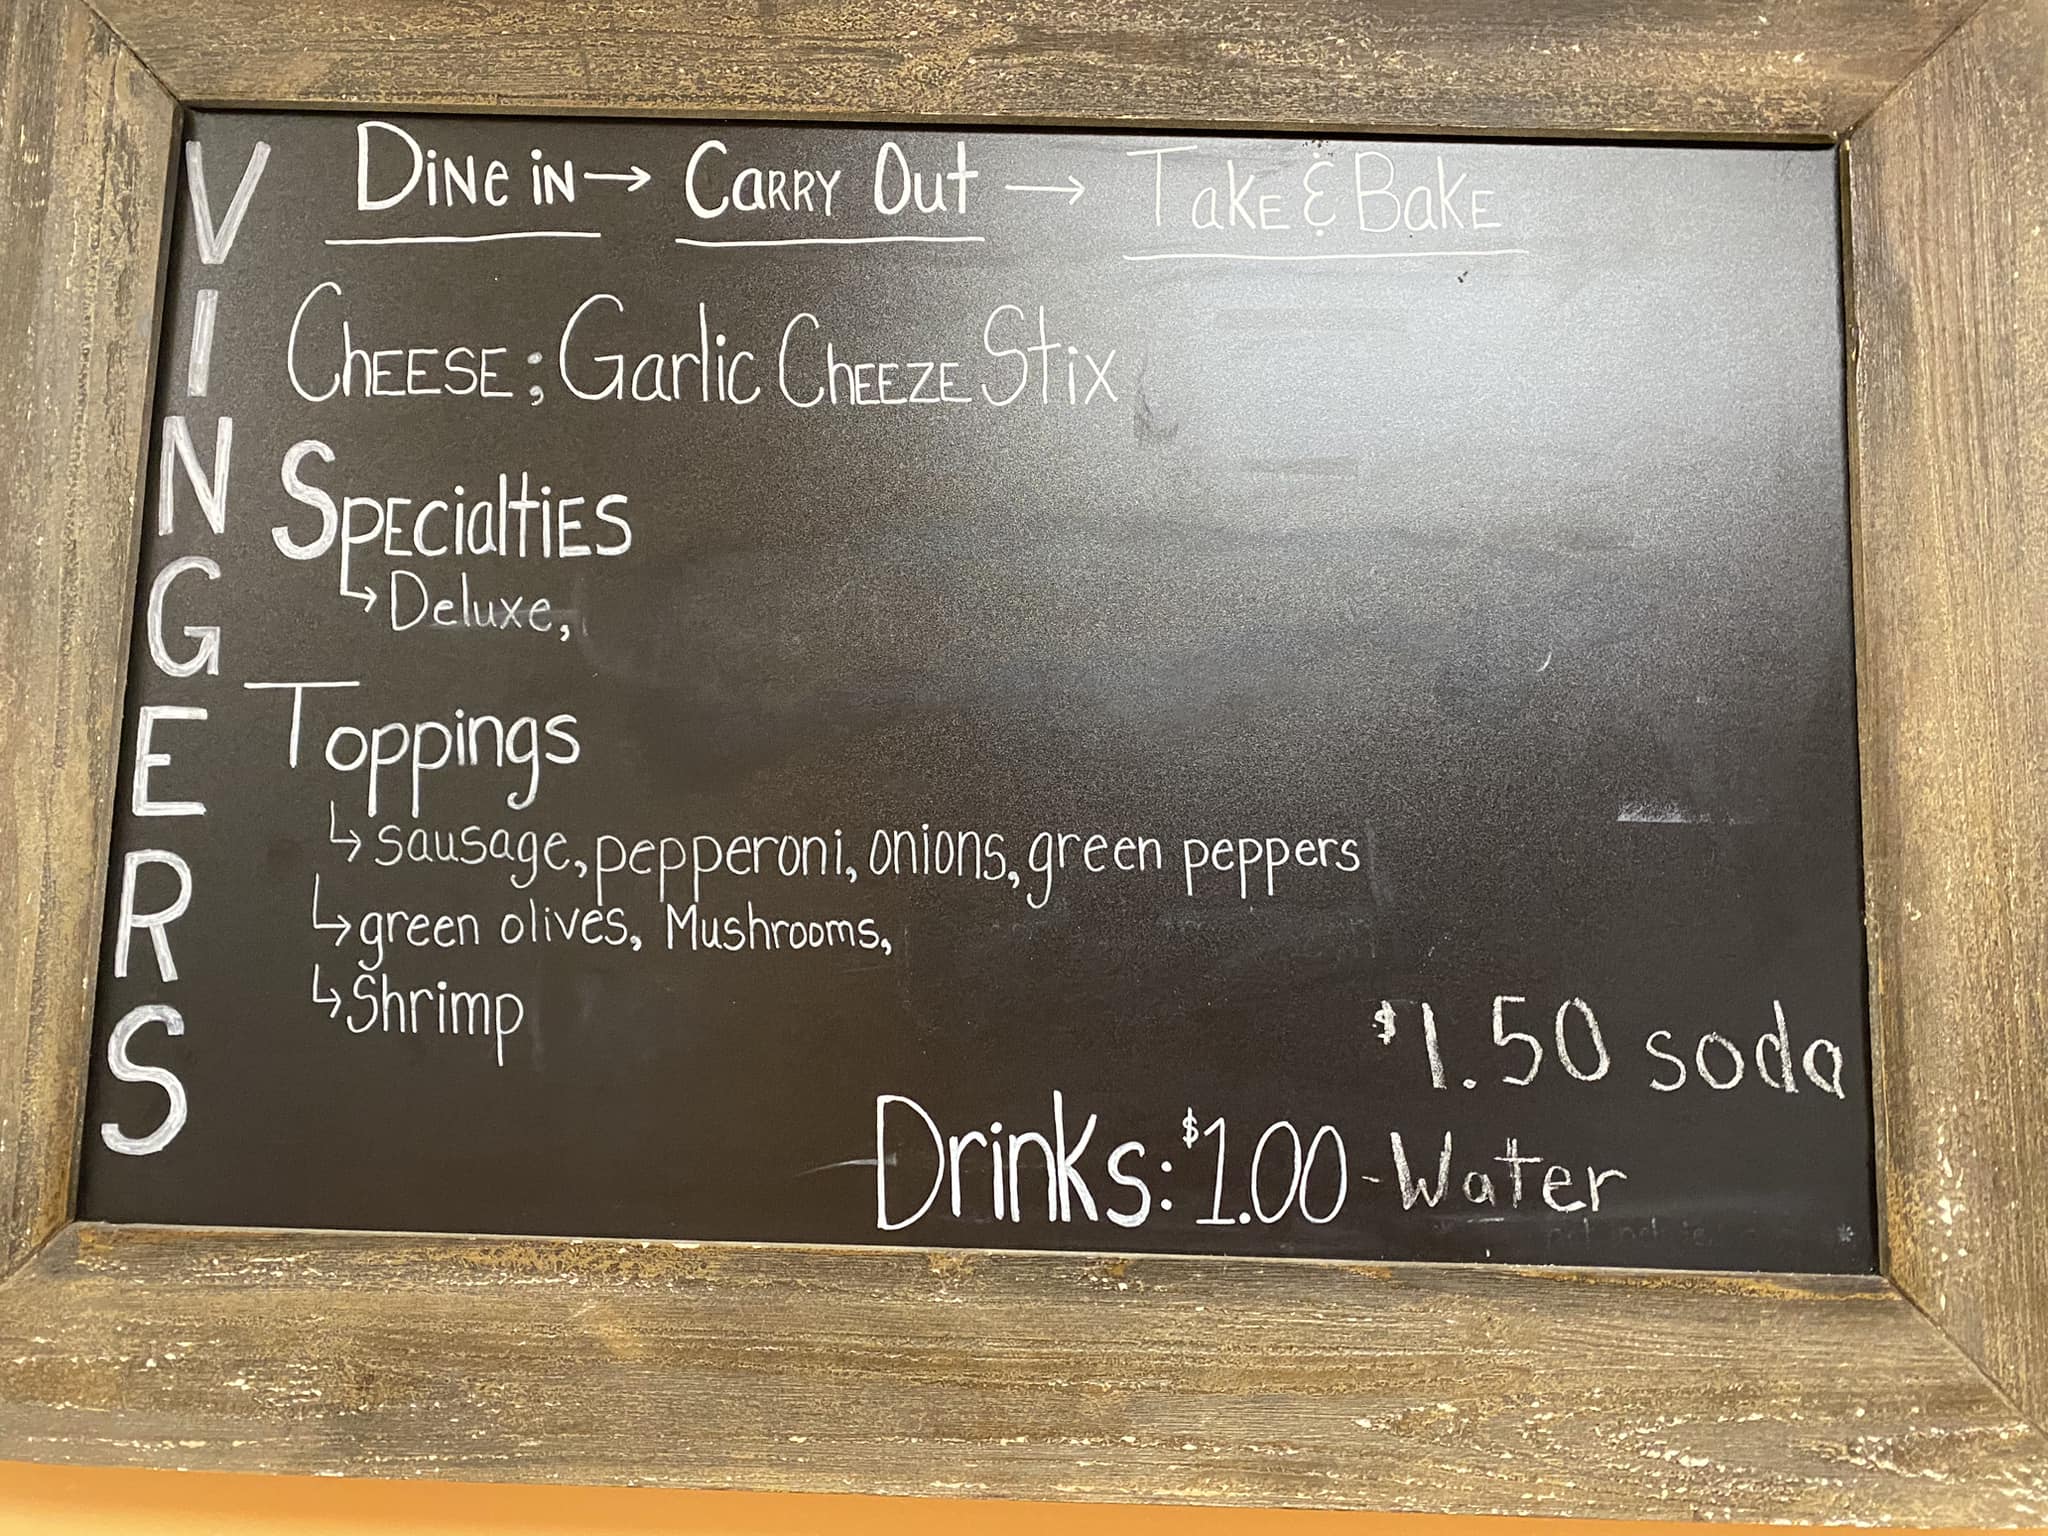 VINGERS
Dine in → Carry Out → Take & Bake
Cheese; Garlic Cheeze Stix
Specialties
↳ Deluxe,
Toppings
↳ sausage, pepperoni, onions, green peppers
↳ green olives, Mushrooms,
↳ Shrimp
$1.50 soda
Drinks: $1.00 - Water